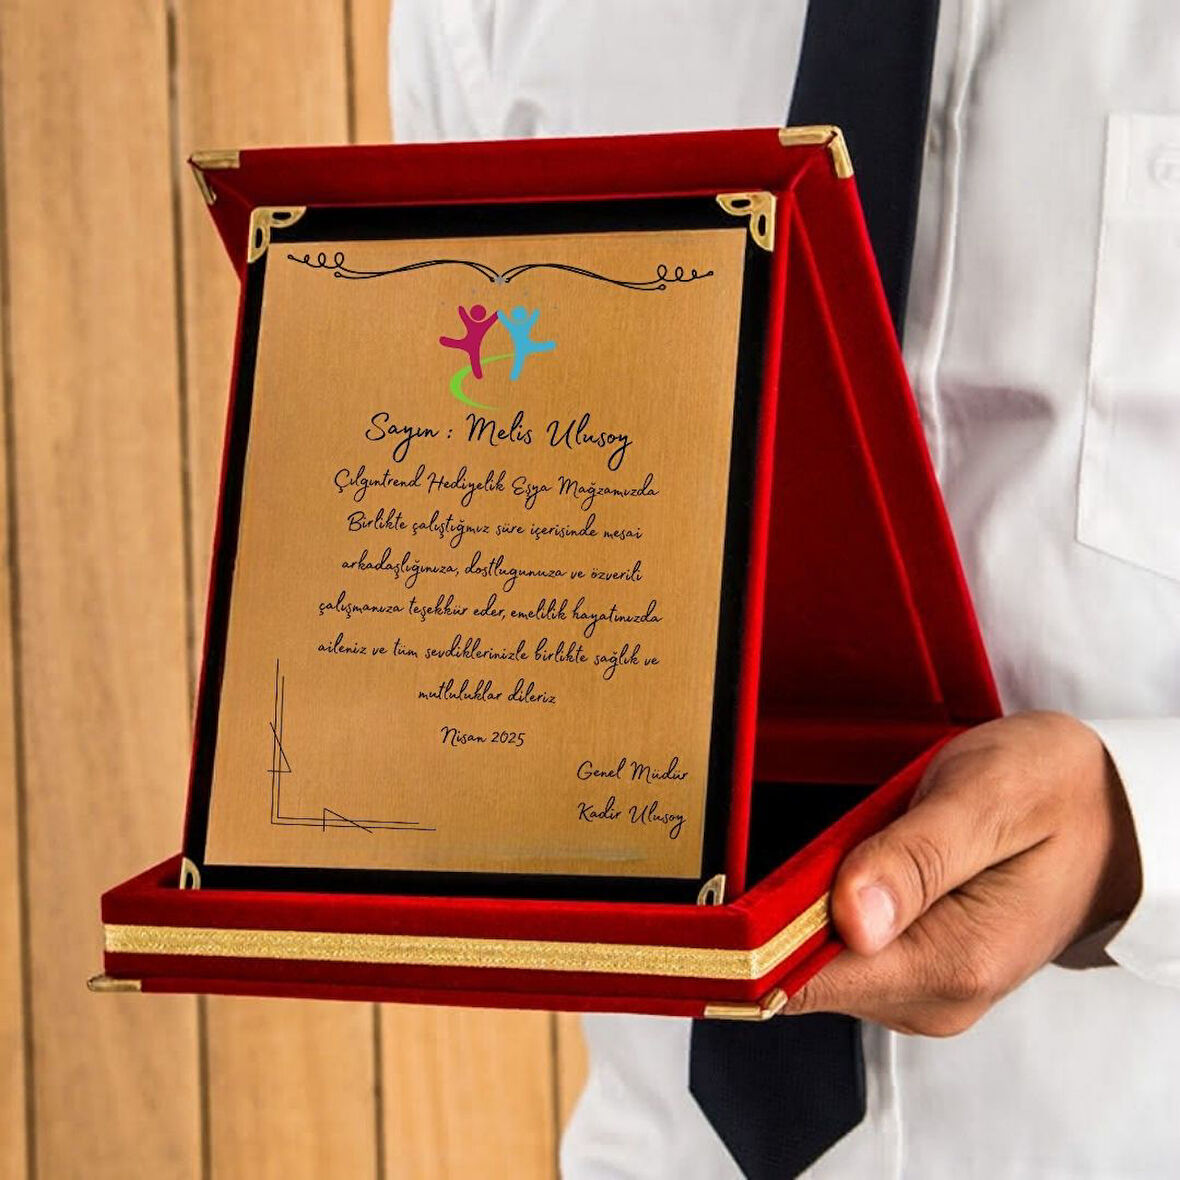 Sayın : Melis Ulusoy
Çılgıntrend Hediyelik Eşya Mağzamızda
Birlikte çalıştığmız süre içerisinde mesai
arkadaşlığınıza, dostlugunuza ve özverili
çalışmanıza teşekkür eder, emelilik hayatınızda
aileniz ve tüm sevdiklerinizle birlikte sağlık ve
mutluluklar dileriz
Nisan 2025
Genel Müdür
Kadir Ulusoy